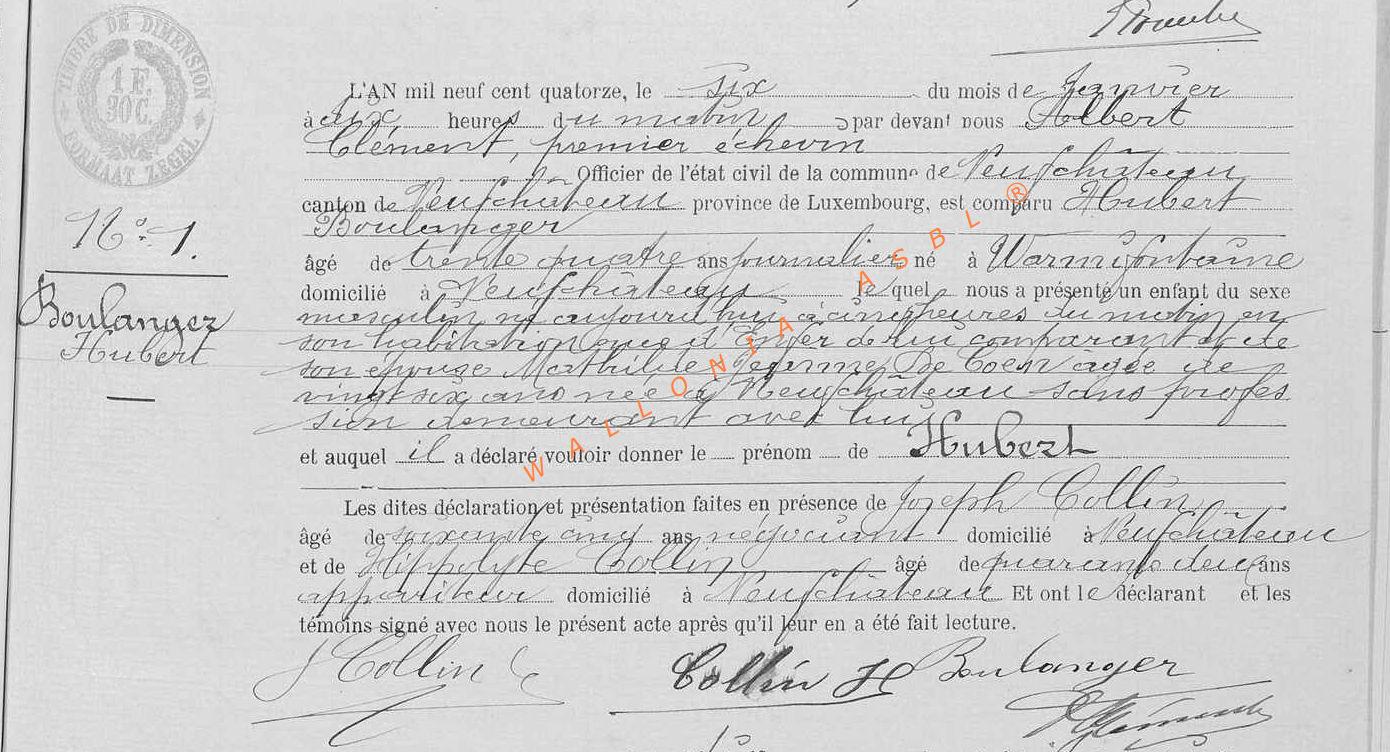 TIMBRE DE DIMENSION
1 F.
30 C.
FORMAAT ZEGEL
L'AN mil neuf cent quatorze, le six du mois de janvier
à dix heures du matin par devant nous Albert
Clément, premier échevin
Officier de l'état civil de la commune de Neufchâteau
canton de Neufchâteau province de Luxembourg, est comparu Hubert
Boulanger
âgé de trente quatre ans journalier né à Warmifontaine
domicilié à Neufchâteau lequel nous a présenté un enfant du sexe
masculin né aujourd'hui à cinq heures du matin en
son habitation d'Enfer de lui comparant et de
son épouse Mathilde Jeanne De Coen âgée de
vingt six ans née à Neufchâteau sans profes
sion demeurant avec lui
et auquel il a déclaré vouloir donner le prénom de Hubert
Les dites déclaration et présentation faites en présence de Joseph Collin
âgé de soixante cinq ans négociant domicilié à Neufchâteau
et de Hippolyte Collin âgé de quarante deux ans
appariteur domicilié à Neufchâteau Et ont le déclarant et les
témoins signé avec nous le présent acte après qu'il leur en a été fait lecture.
J Collin Collin H Boulanger
Clément
No. 1.
Boulanger
Hubert
WALLONIA ASBL ®